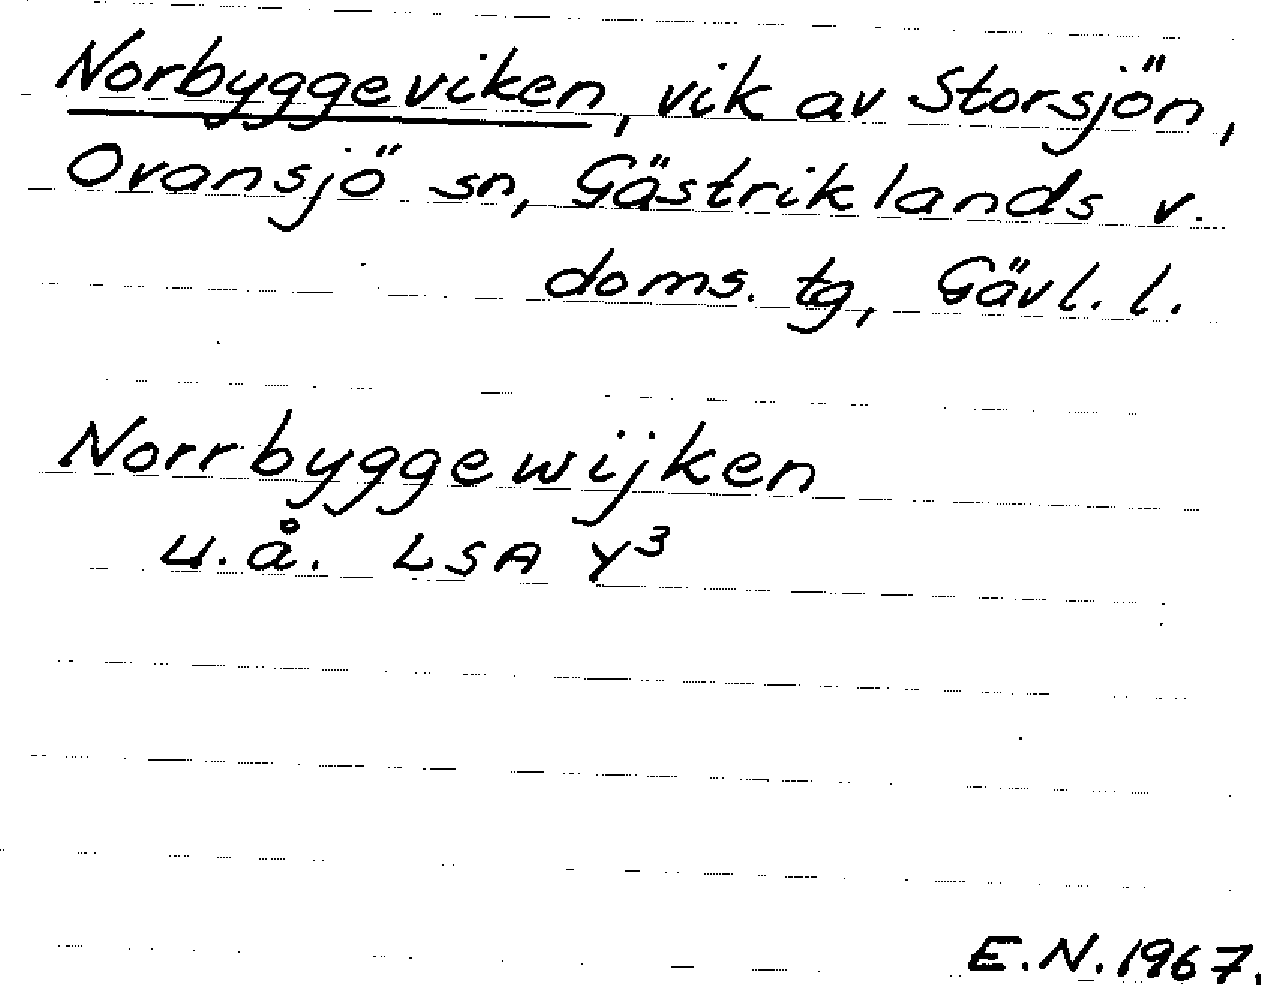 Norbyggeviken, vik av Storsjön,
Ovansjö sn, Gästriklands v.
doms. tg, Gävl. l.
Norrbyggewijken
u.å. LSA Y³
E.N. 1967.